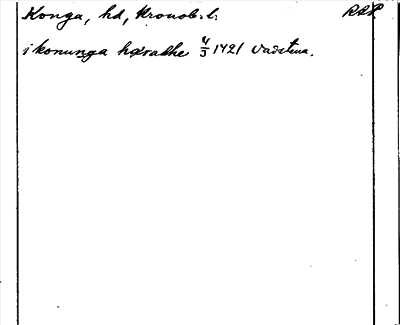 Konga, hd, Kronob. l. RAP
i konunga hæradhe 4/3 1421 Vadstena.